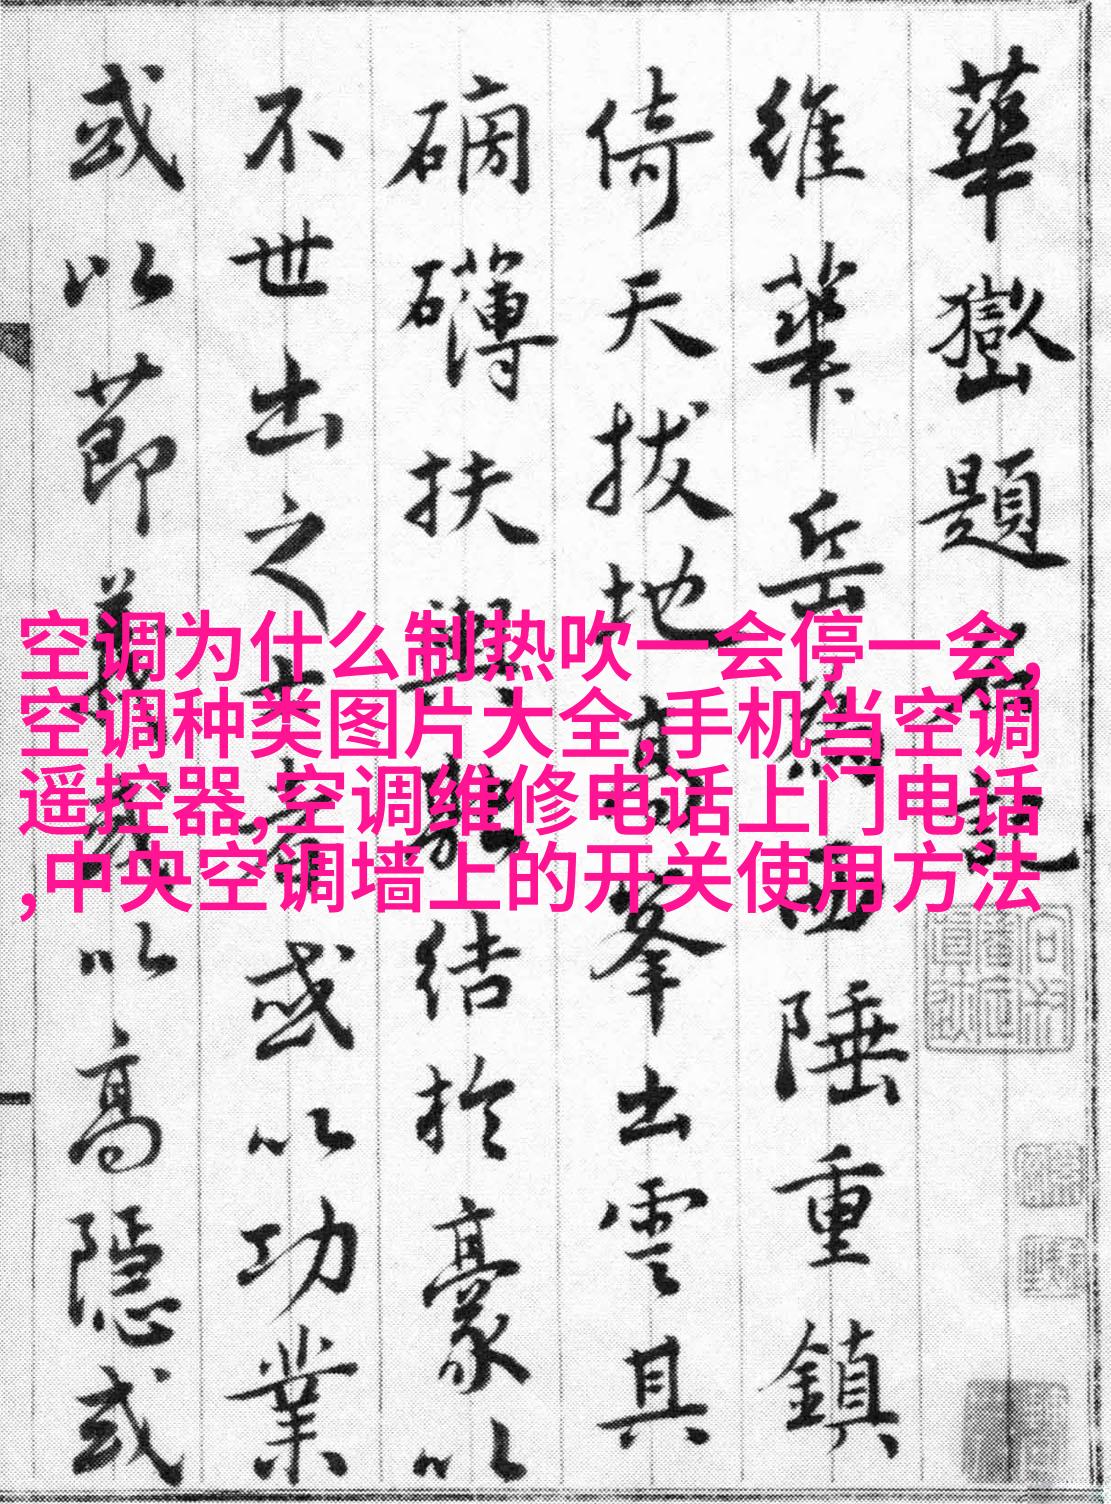 華嶽題名記
維華岳為西陲重鎮
倚天拔地高峯出雲其
磅礴扶輿結於豪以
不世出之士或以功業
或以節義以高隱或
空调为什么制热吹一会停一会,
空调种类图片大全,手机当空调
遥控器,空调维修电话上门电话
,中央空调墙上的开关使用方法